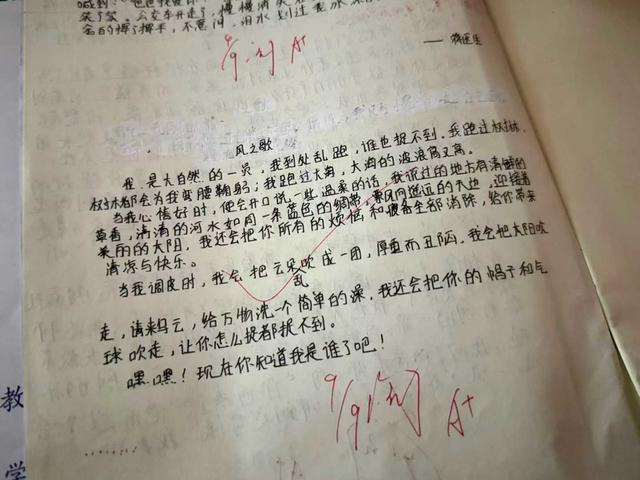 笑了笑。公交车开走了，慢慢消失
会的挥了挥手，不思间，泪水划过
9/9 阅 A+
——蒋医生
风之歌
我是大自然的一员，我到处乱跑，谁也捉不到。我跑过树林，
树木都会为我弯腰鞠躬；我跑过大海，大海的波浪高又高。
当我心情好时，便会开口说一些温柔的话，我说过的地方有清鲜的
草香，清清的河水如同一条蓝色的绸带，乘风向遥远的天边，迎接着
美丽的太阳，我还会把你所有的烦恼和疲备全部消除，给你带来
清凉与快乐。
当我调皮时，我会把云朵吹成一团，厚重而丑陋，我会把太阳吹
乱
走，请来乌云，给万物洗一个简单的澡，我还会把你的帽子和气
球吹走，让你怎么捉都捉不到。
嘿嘿！现在你知道我是谁了吧！
9/9 阅 A+
教
学